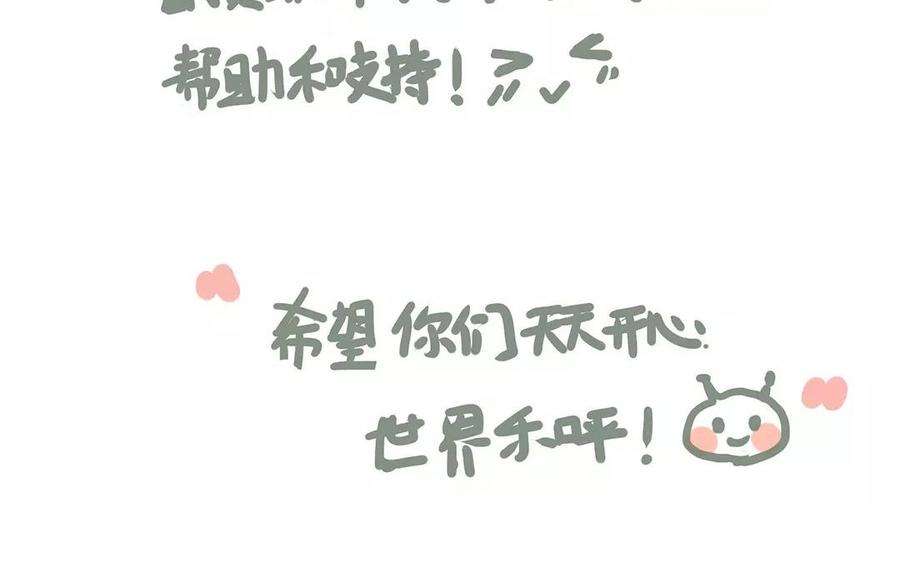 帮助和吱持!
希望你们天天开心:
世界禾呯!